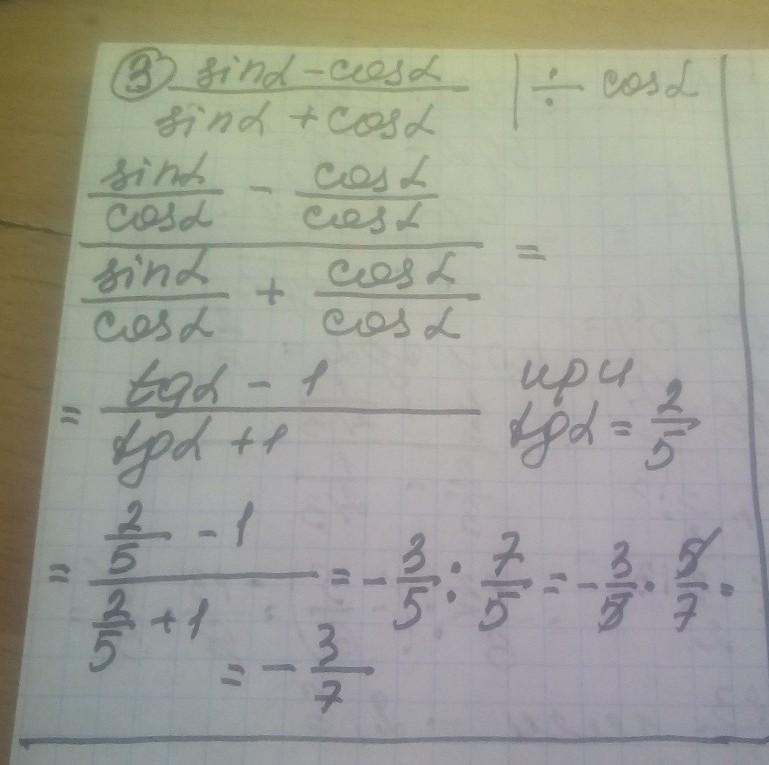 ③ (sinα - cosα)/(sinα + cosα) | ÷ cosα
(sinα/cosα - cosα/cosα)/(sinα/cosα + cosα/cosα) =
= (tgα - 1)/(tgα + 1) при tgα = 2/5
= (2/5 - 1)/(2/5 + 1) = -3/5 : 7/5 = -3/5 · 5/7 =
= -3/7